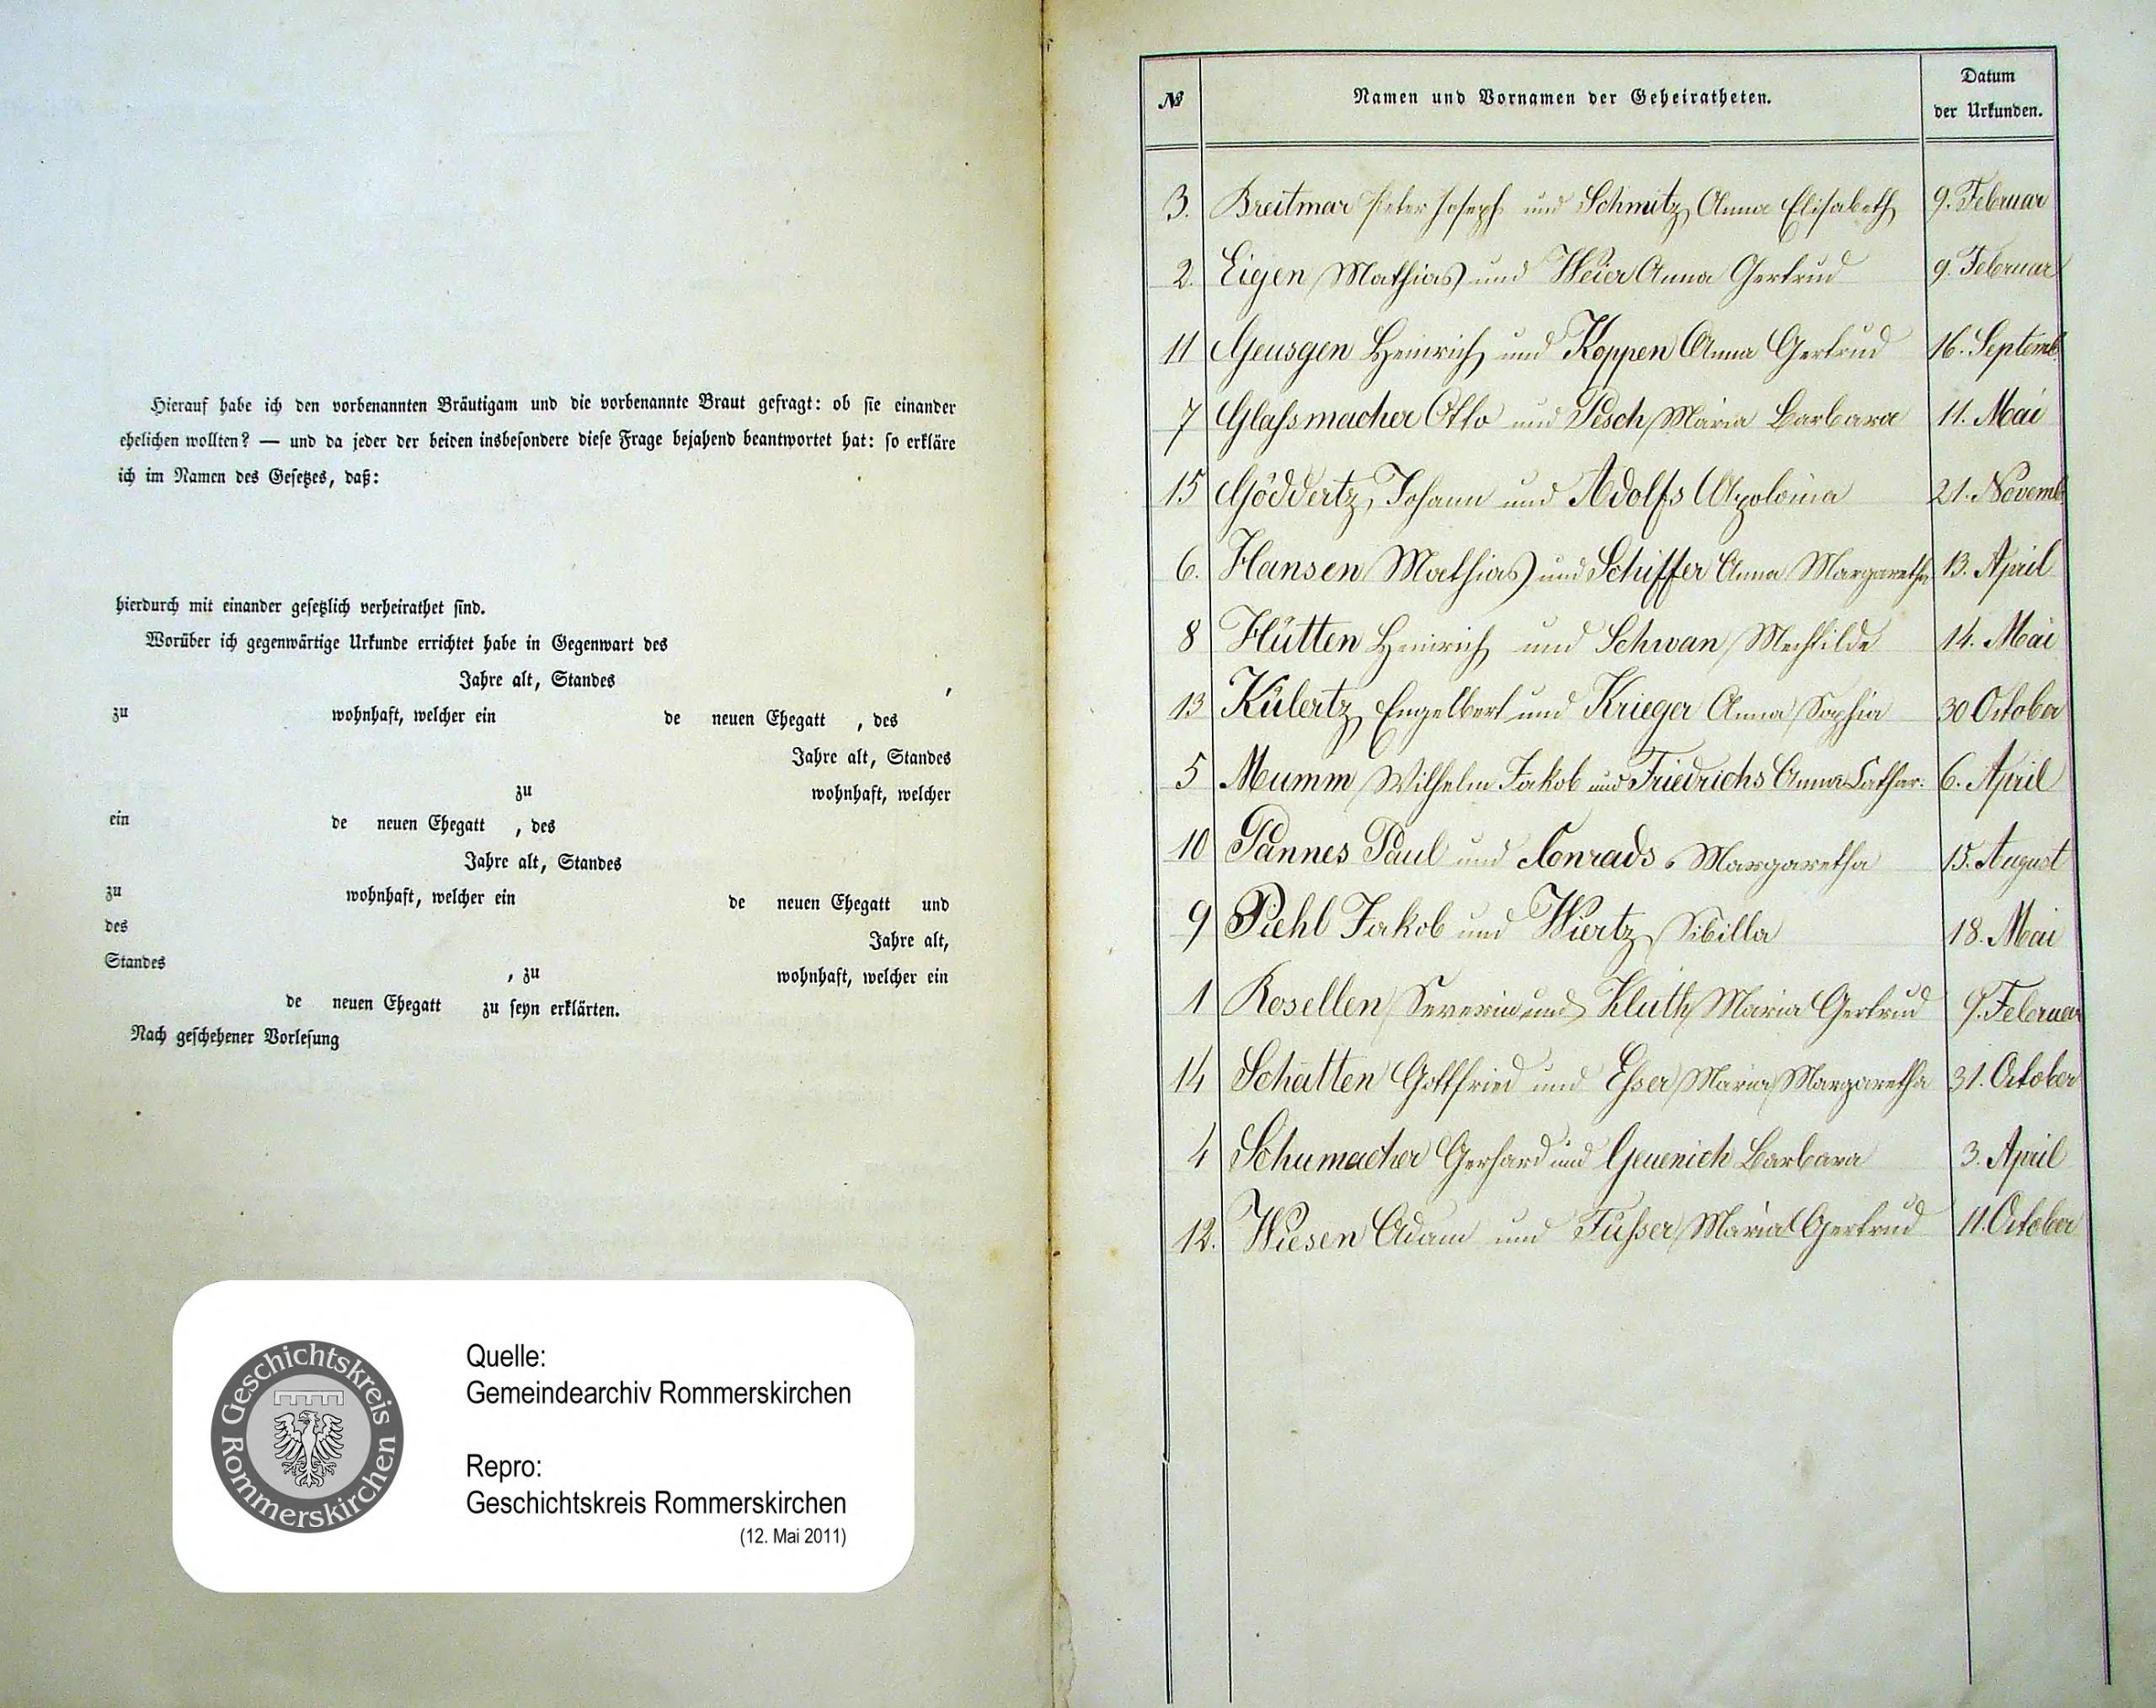 Hierauf habe ich den vorbenannten Bräutigam und die vorbenannte Braut gefragt: ob sie einander
ehelichen wollten? — und da jeder der beiden insbesondere diese Frage bejahend beantwortet hat: so erkläre
ich im Namen des Gesetzes, daß:
hierdurch mit einander gesetzlich verheirathet sind.
Worüber ich gegenwärtige Urkunde errichtet habe in Gegenwart des
Jahre alt, Standes ,
zu wohnhaft, welcher ein de neuen Ehegatt , des
Jahre alt, Standes
zu wohnhaft, welcher
ein de neuen Ehegatt , des
Jahre alt, Standes
zu wohnhaft, welcher ein de neuen Ehegatt und
des Jahre alt,
Standes , zu wohnhaft, welcher ein
de neuen Ehegatt zu seyn erklärten.
Nach geschehener Vorlesung
Geschichtskreis Rommerskirchen
Quelle:
Gemeindearchiv Rommerskirchen
Repro:
Geschichtskreis Rommerskirchen
(12. Mai 2011)
№ Namen und Vornamen der Geheiratheten. Datum
der Urkunden.
3. Breitmar Peter Joseph und Schmitz Anna Elisabeth 9. Februar
2. Eigen Mathias und Weier Anna Gertrud 9. Februar
11 Geusgen Heinrich und Koppen Anna Gertrud 16. Septemb
7 Glassmacher Otto und Pesch Maria Barbara 11. Mai
15 Göddertz Johann und Adolfs Apolonia 21. Novemb
6. Hansen Mathias und Schiffer Anna Margaretha 13. April
8 Hütten Heinrich und Schwan Mechtilde 14. Mai
13 Külertz Engelbert und Krieger Anna Sophia 30 October
5 Mumm Wilhelm Jakob und Friedrichs Anna Cathar. 6. April
10 Pannes Paul und Conrads Margaretha 15. August
9 Piehl Jakob und Wiertz Sibilla 18. Mai
1 Rosellen Severin und Kluth Maria Gertrud 9. Februar
14 Schatten Gottfried und Esser Maria Margaretha 31. October
4 Schumacher Gerhard und Geuenich Barbara 3. April
12. Wiesen Adam und Fusser Maria Gertrud 11. October